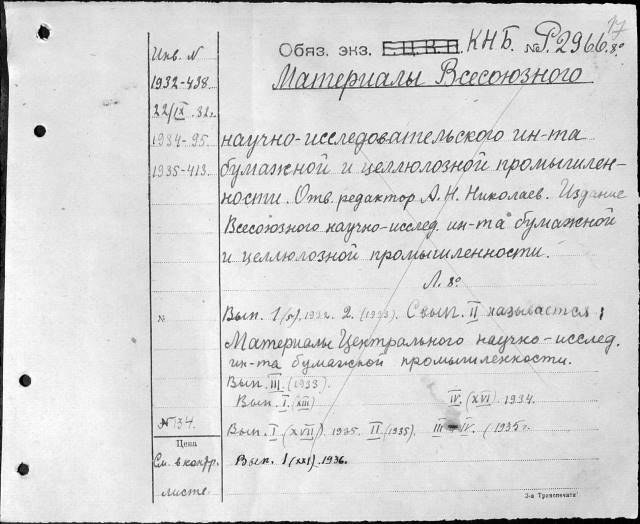 17
Обяз. экз. Г.Ц.К.П. КНБ. № P.2966. 8°
Инв. N
1932-438
22/IX.32г.
1934-95
1935-413.
Материалы Всесоюзного
научно-исследовательского ин-та
бумажной и целлюлозной промышлен-
ности. Отв. редактор А. Н. Николаев. Издание
Всесоюзного научно-исслед. ин-та бумажной
и целлюлозной промышленности.
Л. 8°
№
Вып. 1(5). 1932. 2. (1933). С вып. II называется;
Материалы Центрального научно-исслед.
ин-та бумажной промышленности.
Вып. III. (1933.
Вып. I. (XIII) IV. (XVI) 1934.
N 134.
Вып. I (XVII) 1935. II (1935). III-IV. (1935г.
Цена
См. в контр.
листе.
Вып. 1(XXI). 1936.
3-я Транспечати